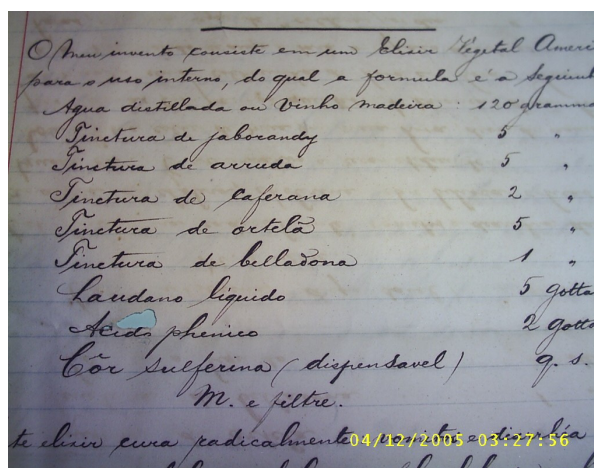 O meu invento consiste em um Elixir Vegetal Ameri
para o uso interno, do qual a formula é a seguint
Agua distillada ou Vinho madeira : 120 gramma
Tinctura de jaborandy 5 "
Tinctura de arruda 5 "
Tinctura de caferana 2 "
Tinctura de ortelã 5 "
Tinctura de belladona 1 "
Laudano liquido 5 gotta
Acido phenico 2 gotta
Côr sulferina (dispensavel) q. s.
M. e filtre.
te elixir cura radicalmente
04/12/2005 03:27:56